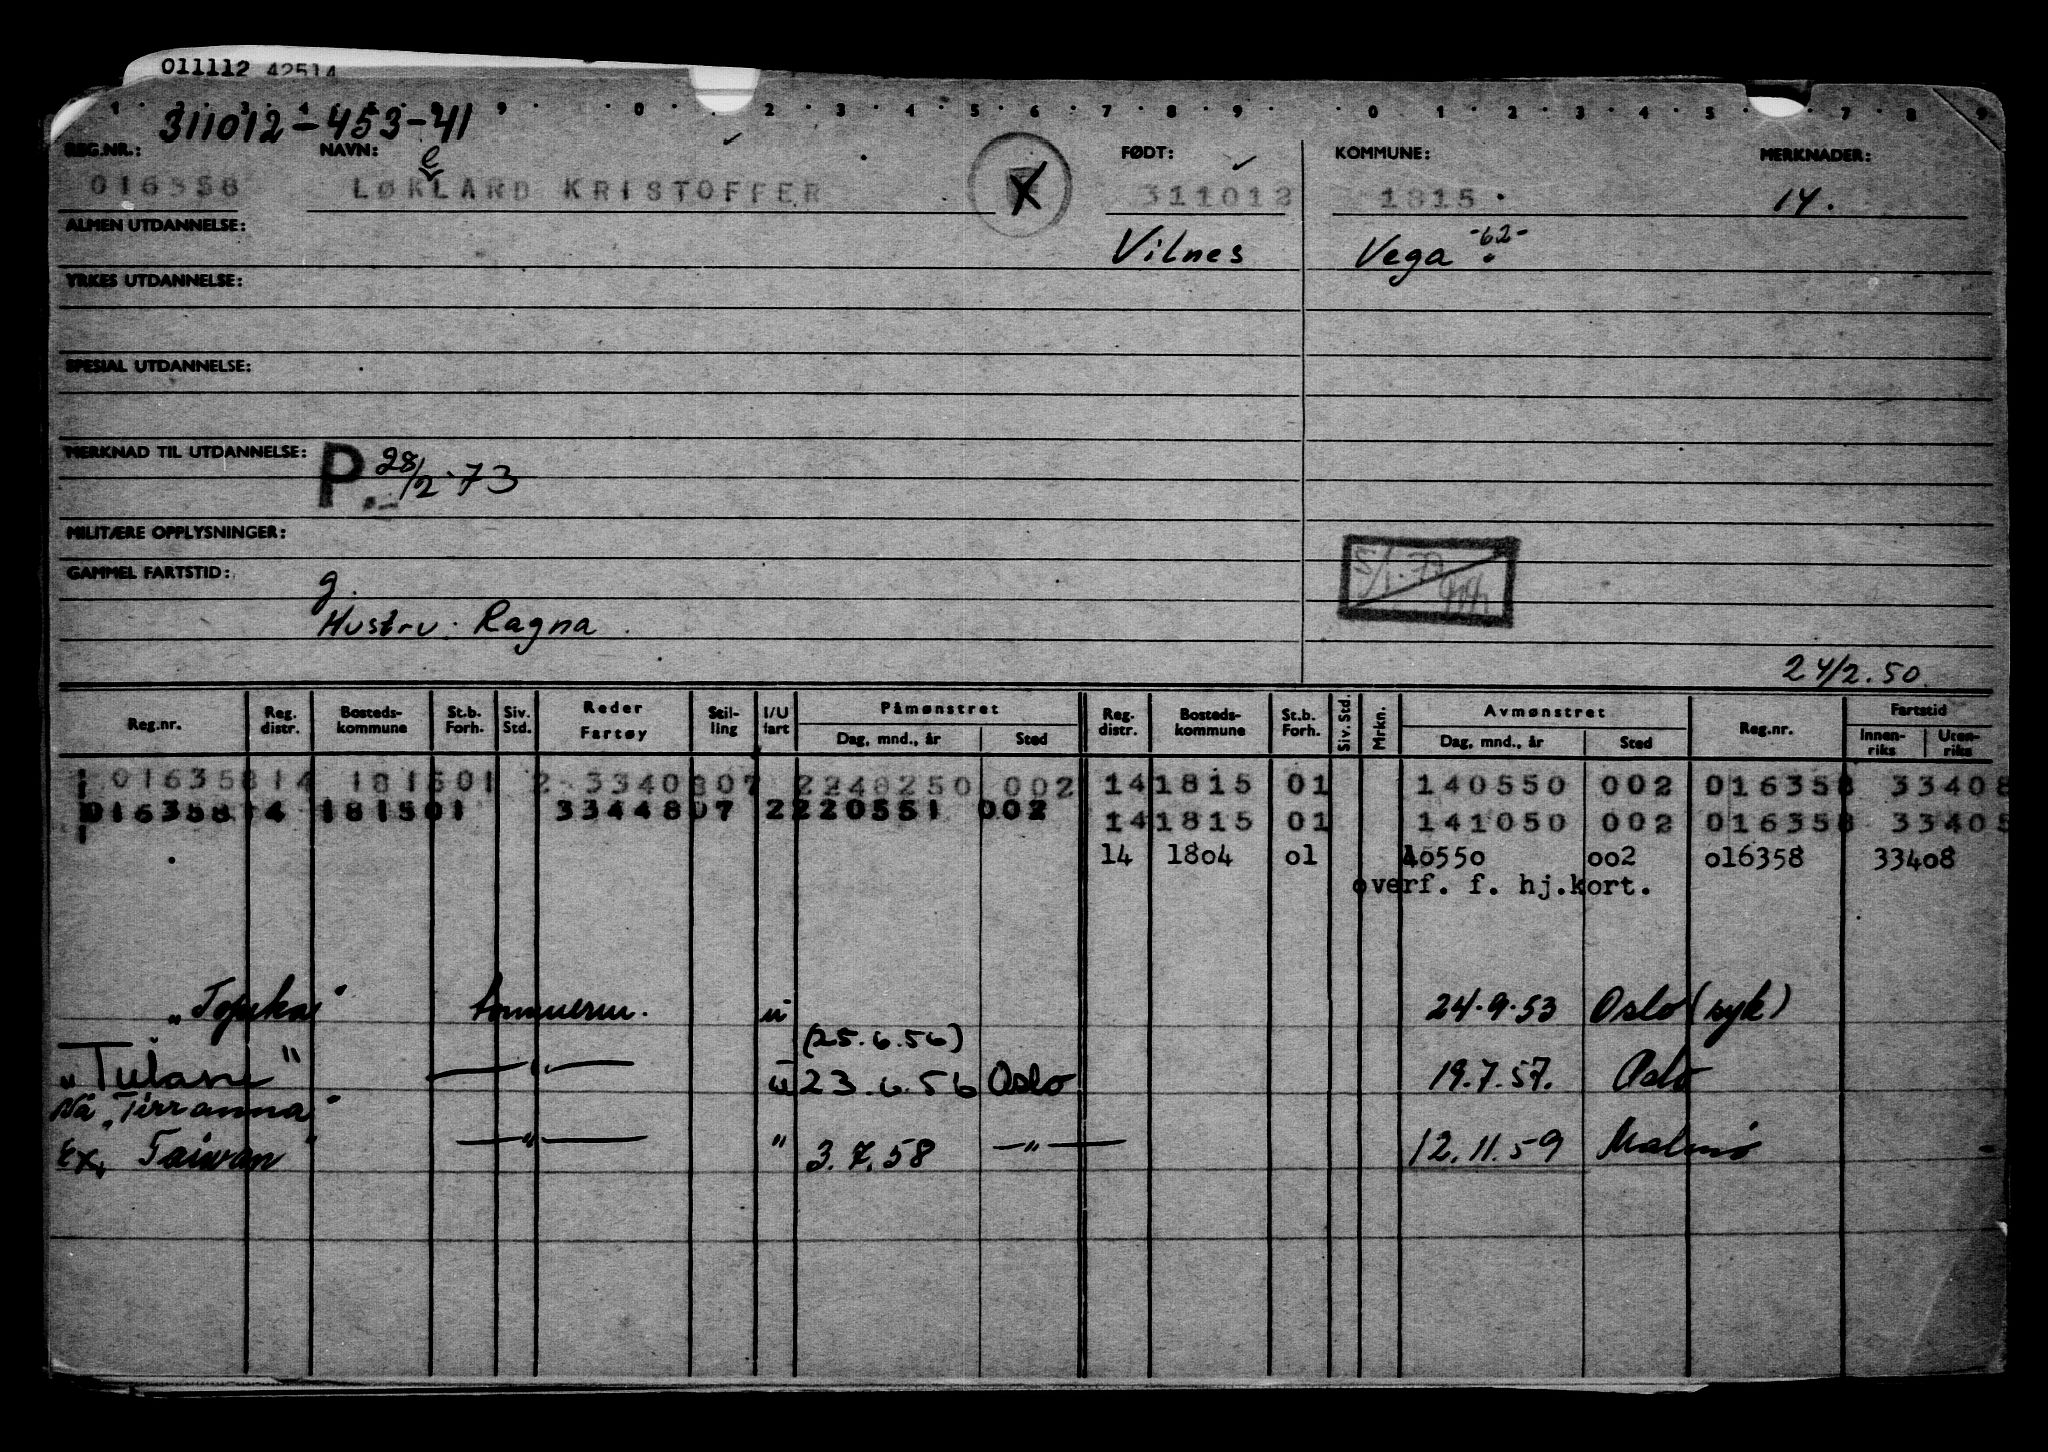 011112 42514
1 2 3 4 5 6 8 9 0 2 3 4 5 6 7 8 9 0 1 2 3 4 5 7 8 9
311012-453-41
REG.NR.: NAVN: FØDT: KOMMUNE: MERKNADER:
e
016358 LØKLAND KRISTOFFER X 311012 1815 14.
ALMEN UTDANNELSE: Vilnes Vega -62-
YRKES UTDANNELSE:
SPESIAL UTDANNELSE:
MERKNAD TIL UTDANNELSE: P. 28/2-73
MILITÆRE OPPLYSNINGER:
GAMMEL FARTSTID: g.
Hustru: Ragna.
24/2.50.
Reg.nr. Reg. distr. Bosteds-kommune St.b. Forh. Siv. Std. Reder Fartøy Stil-ling I/U fart Påmønstret Dag, mnd., år Sted Reg. distr. Bosteds-kommune St.b. Forh. Siv. Std. Mrkn. Avmønstret Dag, mnd., år Sted Reg.nr. Fartstid Innen-riks Uten-riks
01635814 181501 2 3340807 2240250 002 14 1815 01 140550 002 016358 33408
01635814 181501 3344807 2220551 002
14 1815 01 141050 002 016358 33405
14 1804 01 140550 002 016358 33408
overf. f. hj.kort.
"Topeka" u 24.9.53 Oslo (syk)
(25.6.56)
"Tulane" — " — u 23.6.56 Oslo 19.7.57. Oslo
Nå "Tirranna"
Ex, Taiwan" — " — " 3.7.58 — " — 12.11.59 Malmø